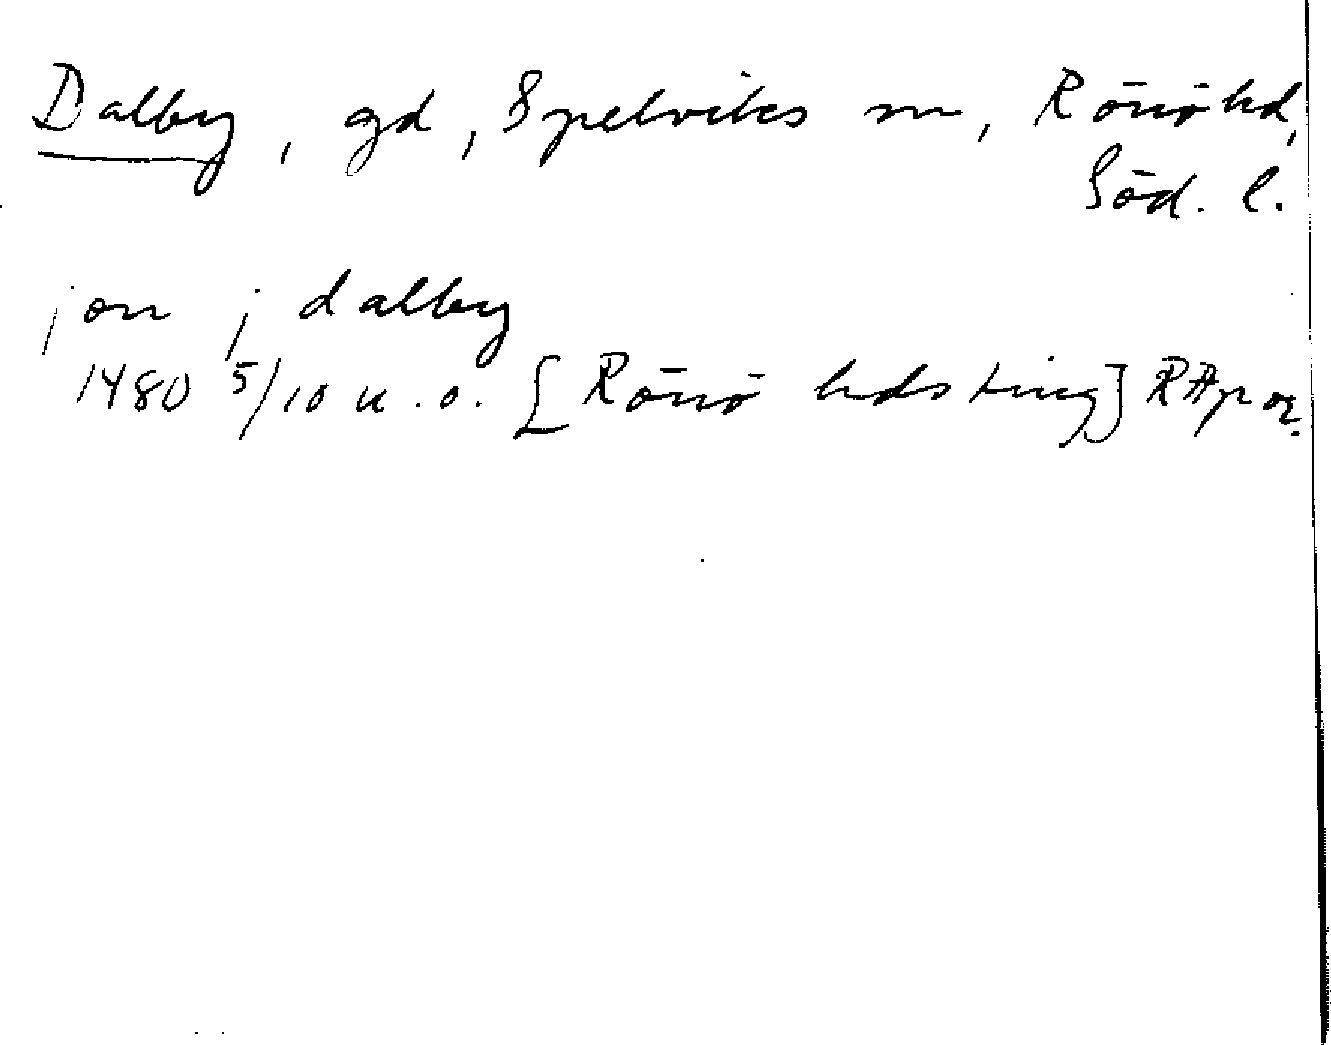 Dalby, gd, Spelviks sn, Rönö hd,
Söd. l.
jon j dalby
1480 5/10 u.o. [Rönö hds ting] RAp or.